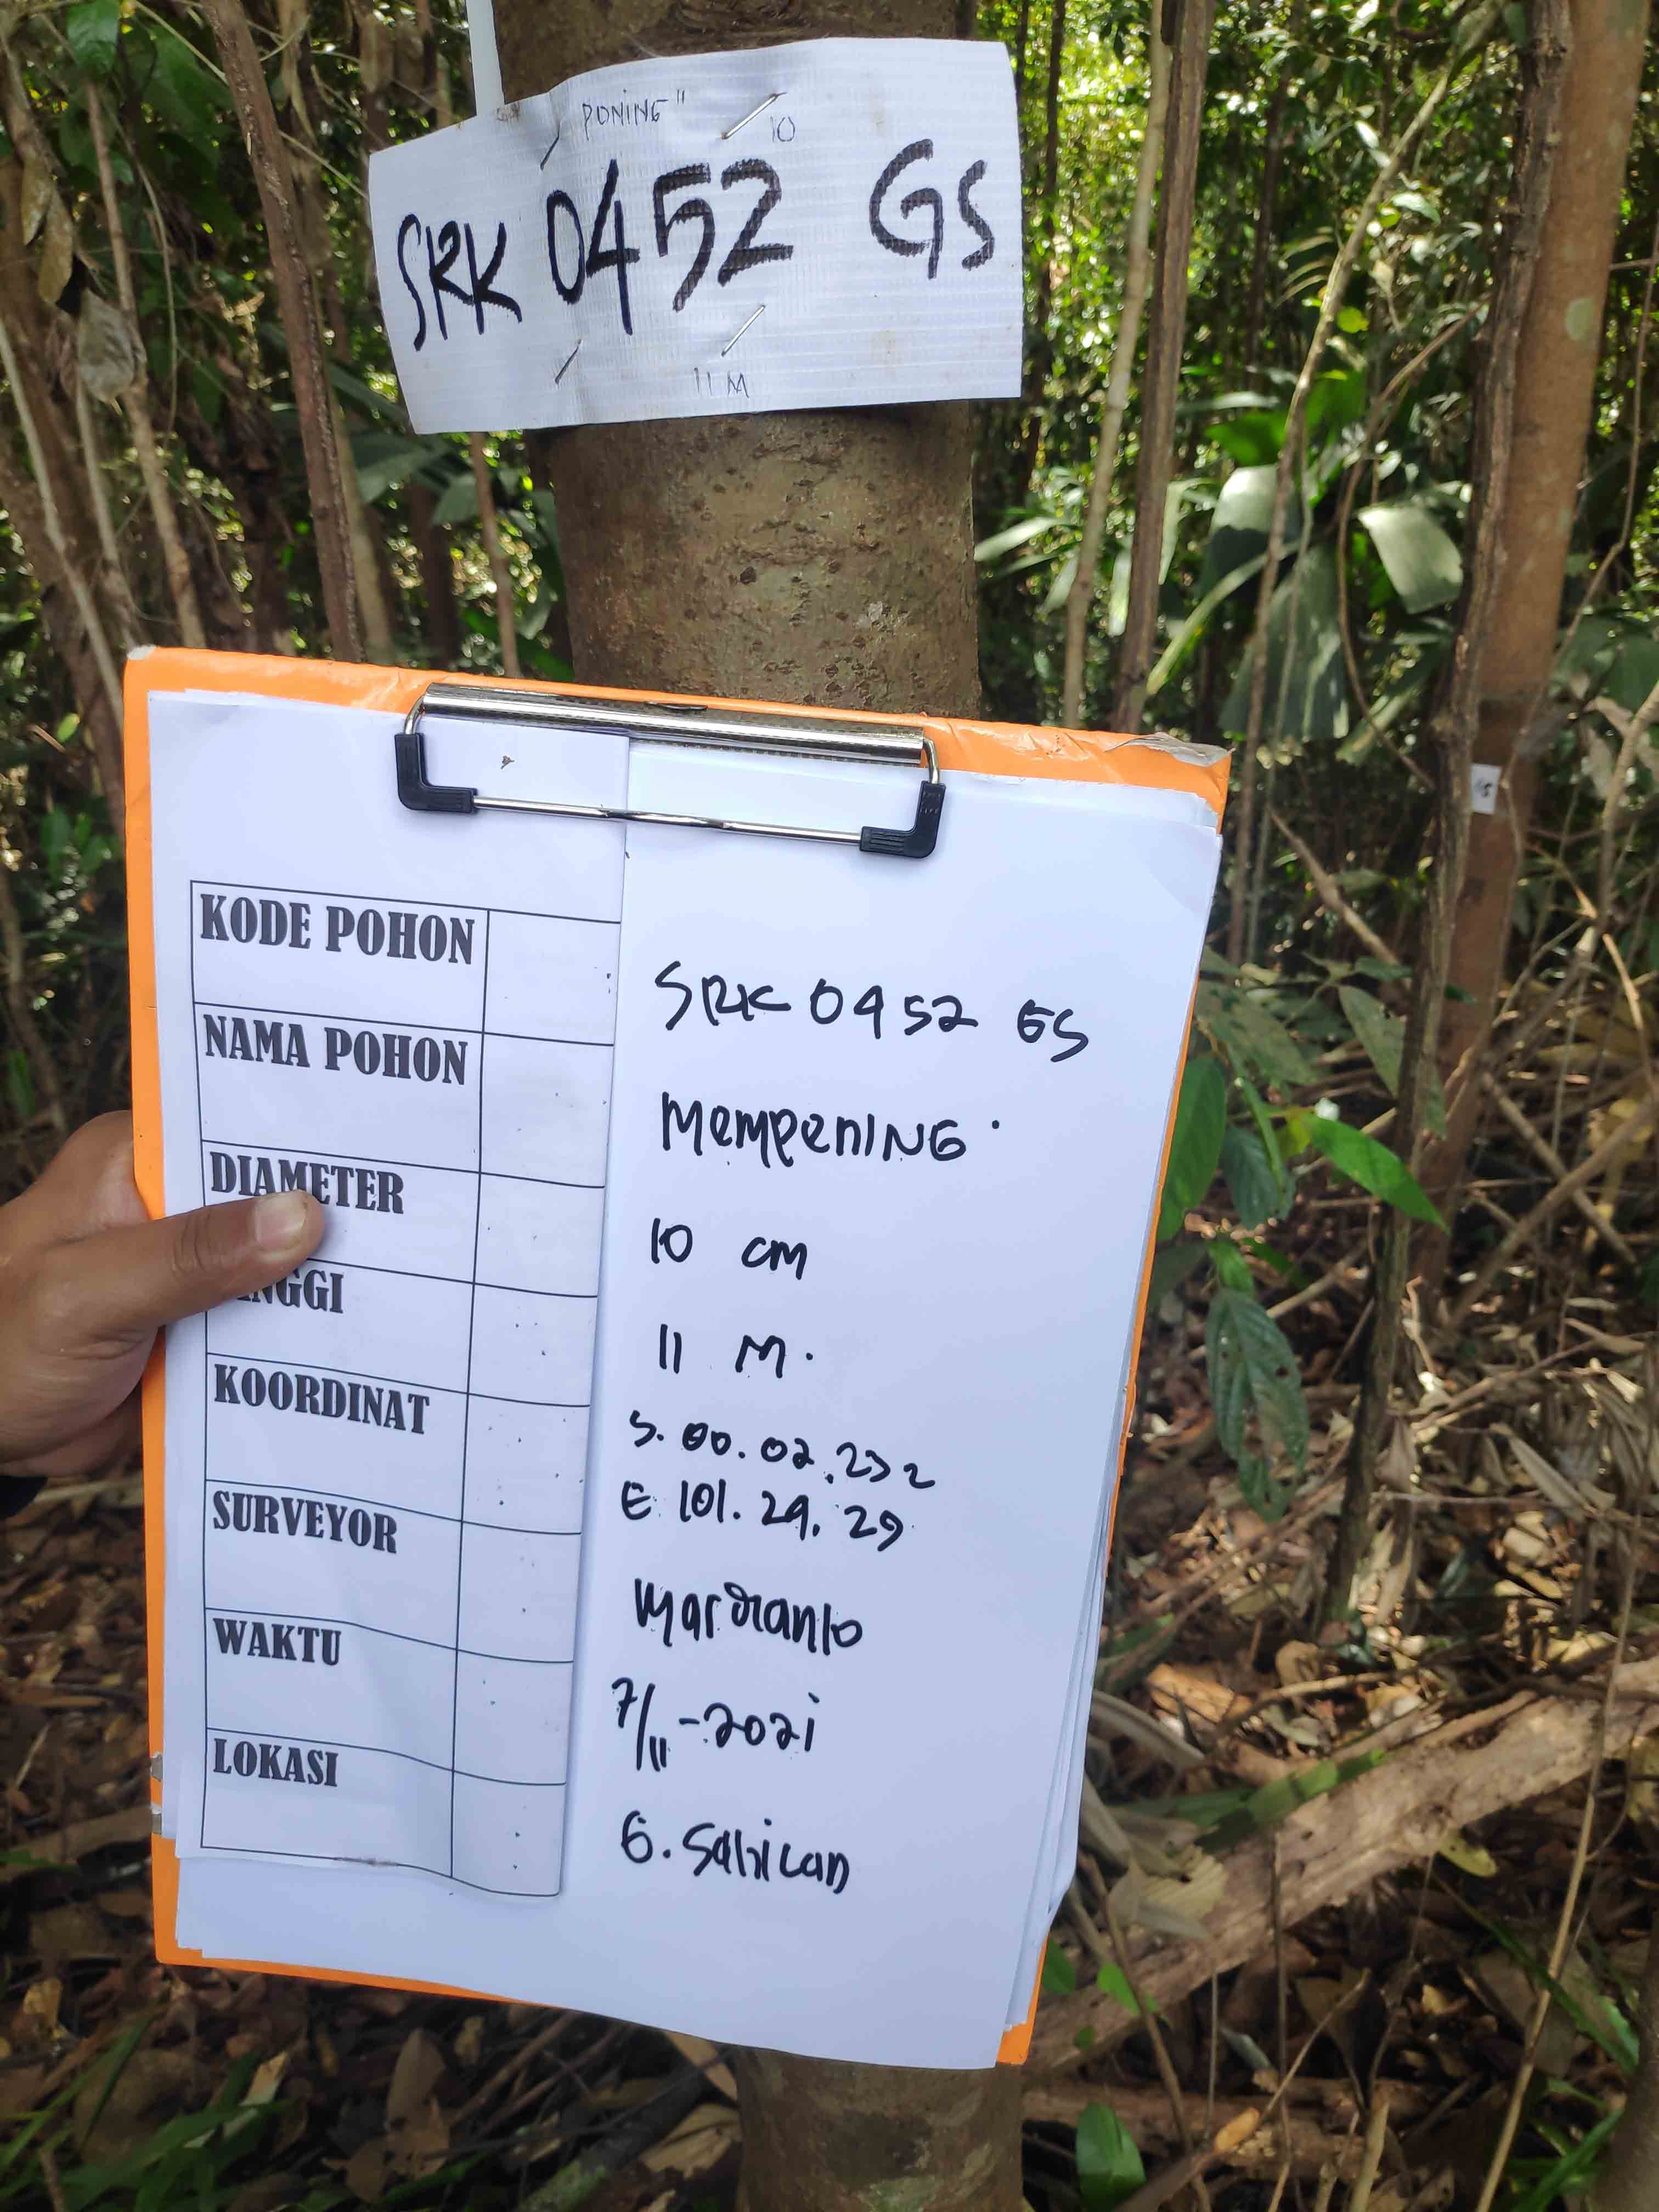 PONING "
10
SRK 0452 GS
11 M
KODE POHON
SRK 0452 GS
NAMA POHON
MempeNING
DIAMETER
10 cm
NGGI
11 M.
KOORDINAT
S. 00. 02. 232
E 101. 29. 29
SURVEYOR
Mardianto
WAKTU
7/11-2021
LOKASI
G.